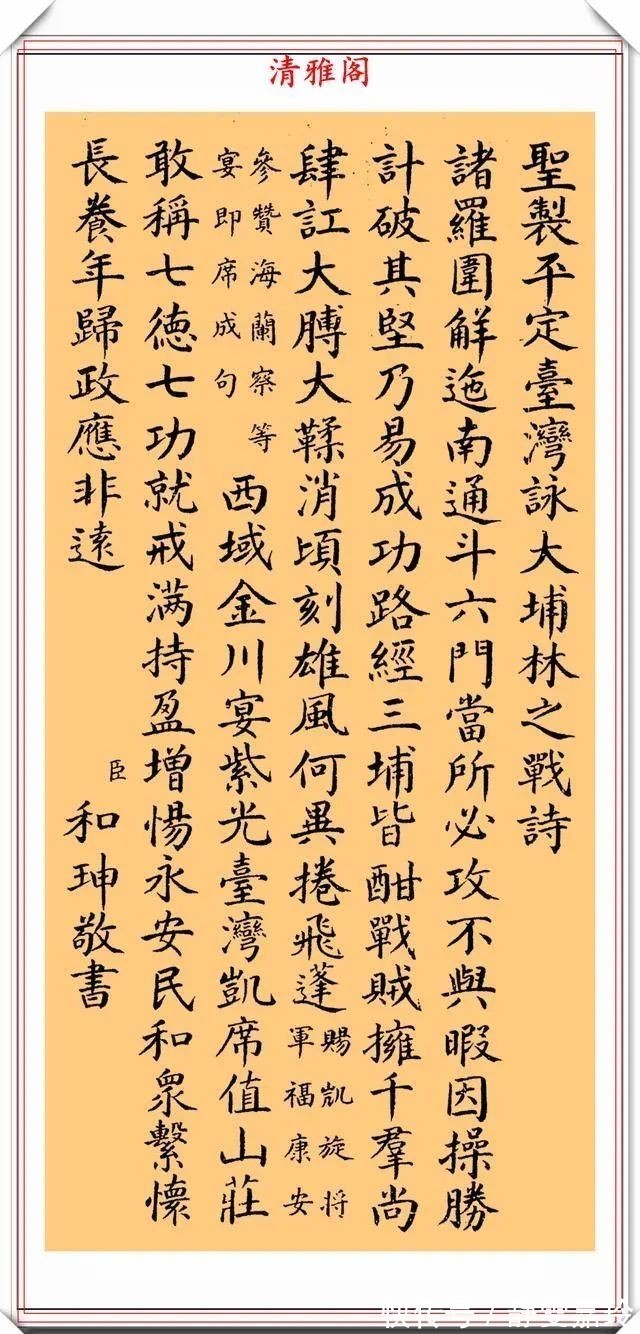 清雅阁
聖製平定臺灣詠大埔林之戰詩
諸羅圍解迤南通斗六門當所必攻不與暇因操勝
計破其堅乃易成功路經三埔皆酣戰賊擁千羣尚
肆訌大膊大鞣消頃刻雄風何異捲飛蓬賜凱旋将
軍福康安
參贊海蘭察等
宴即席成句
西域金川宴紫光臺灣凱席值山莊
敢稱七德七功就戒满持盈增惕永安民和衆繫懷
長養年歸政應非遠
臣
和珅敬書